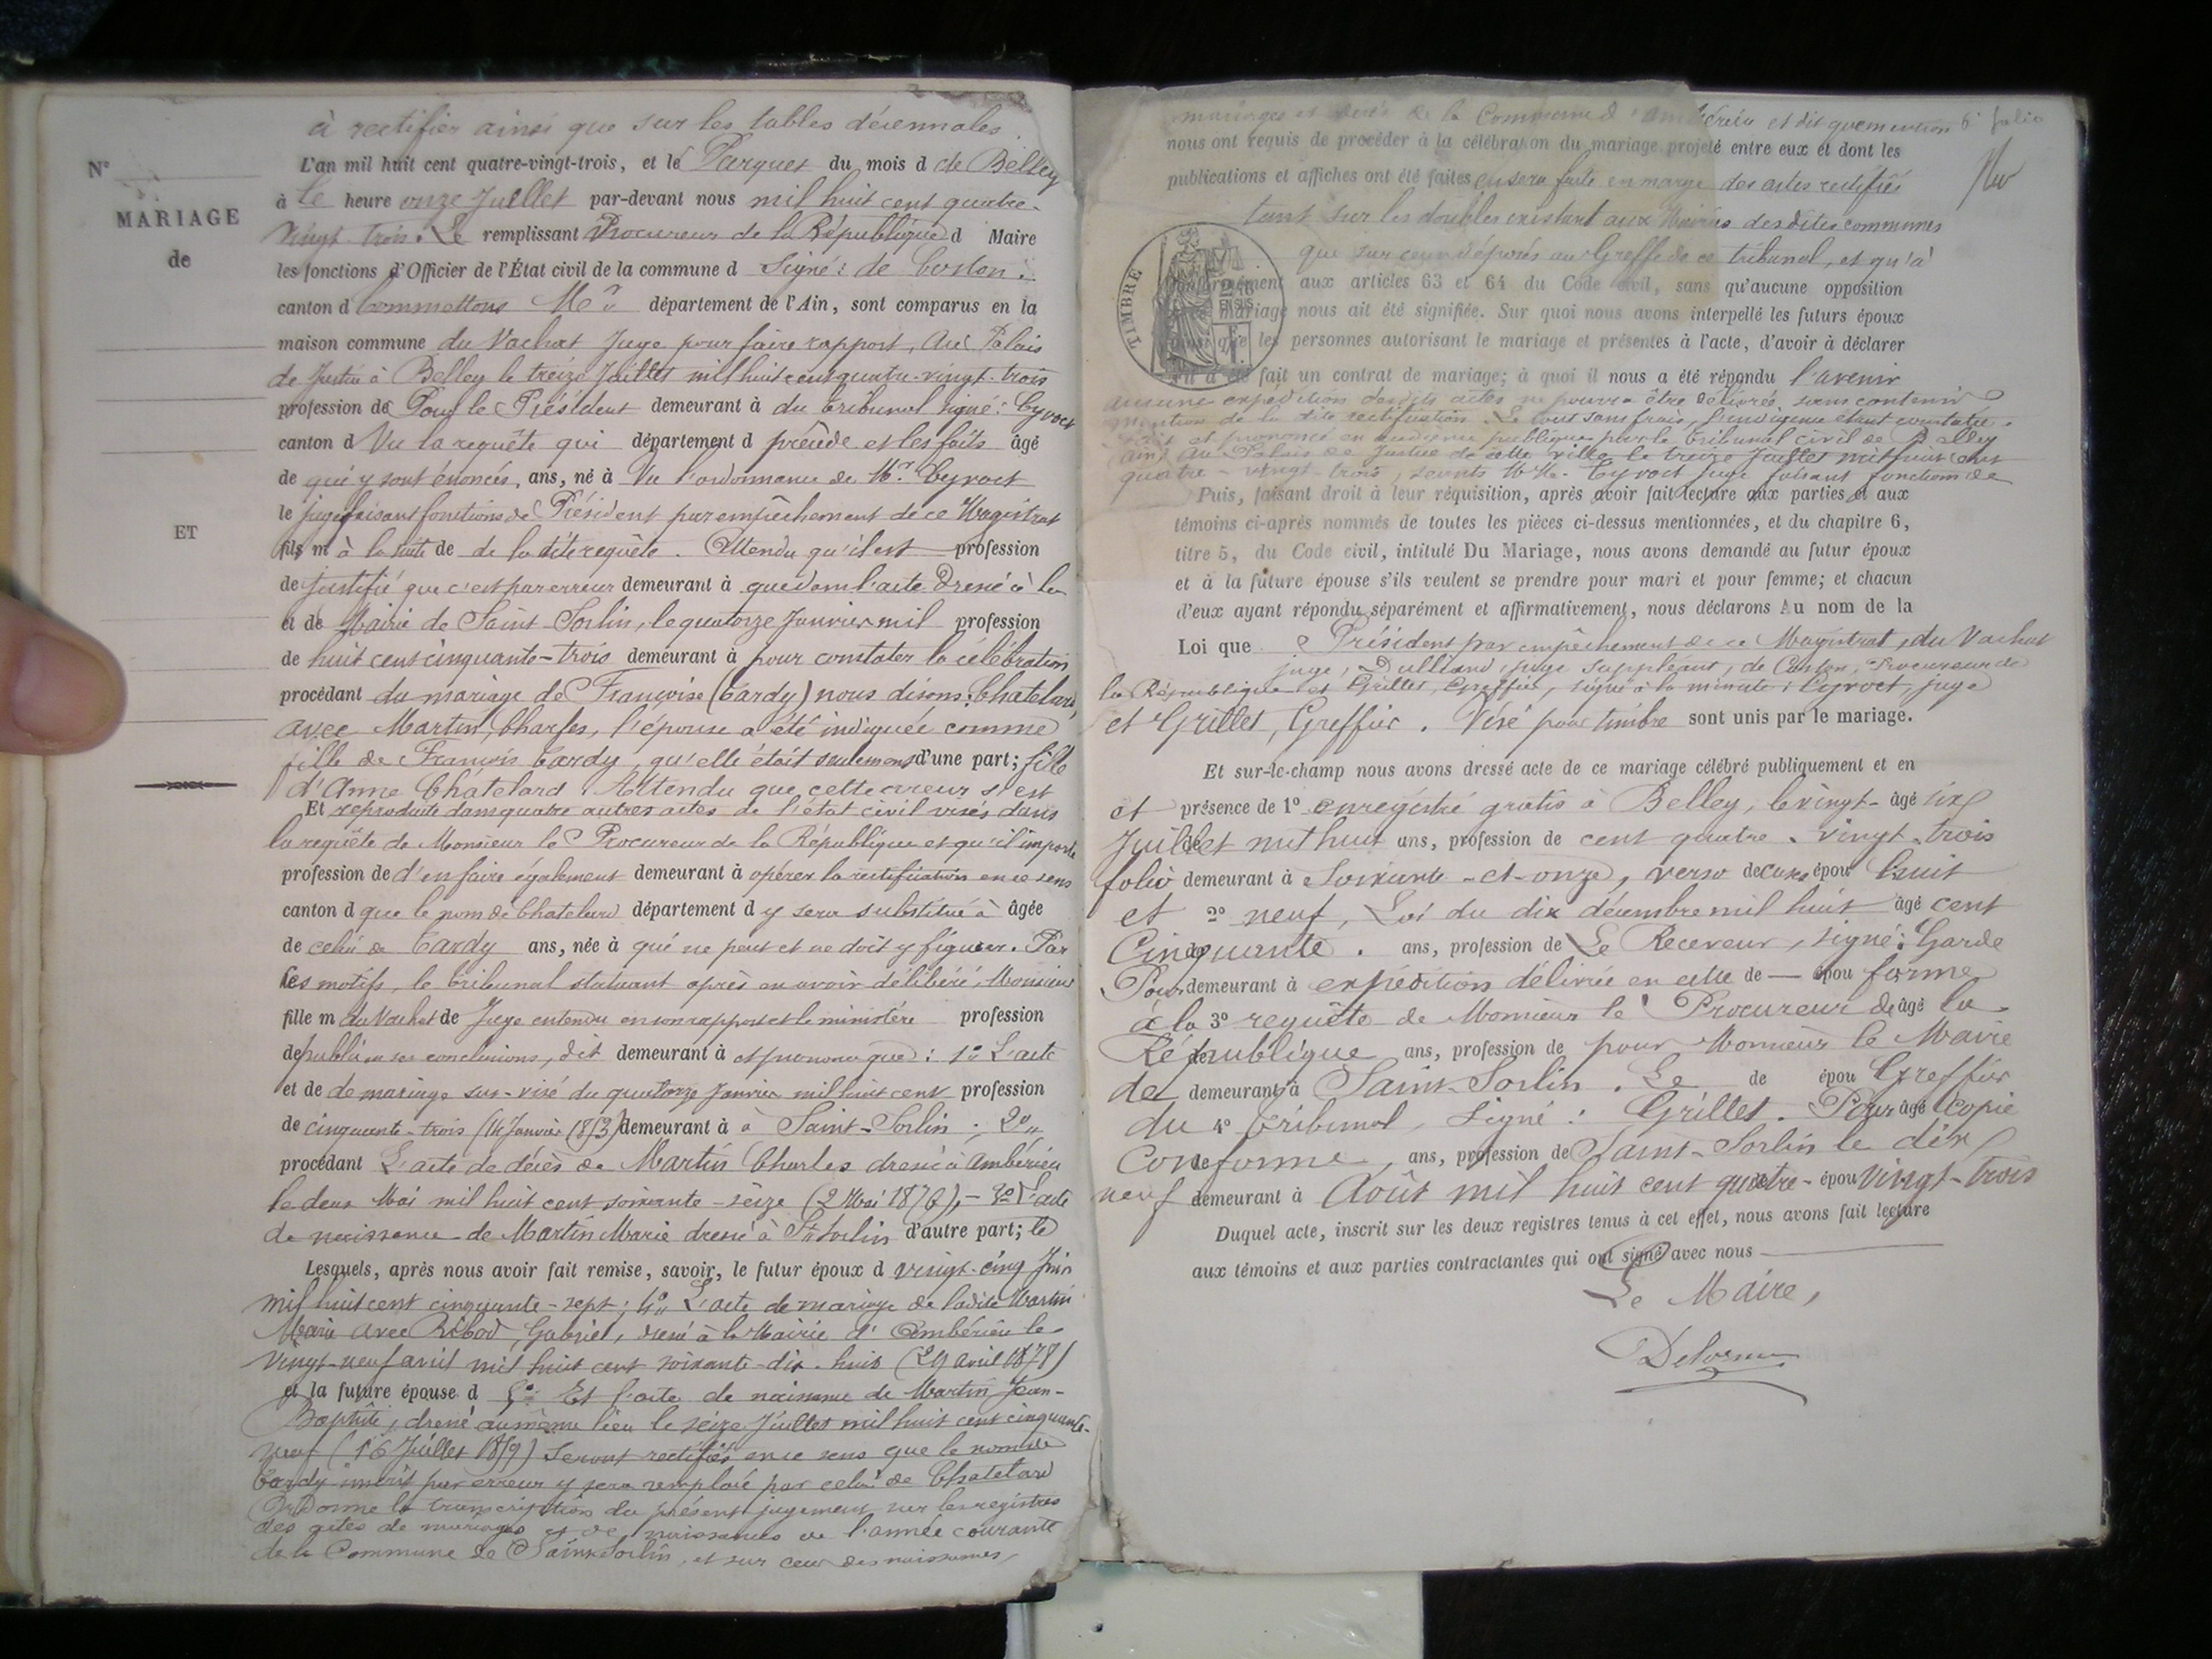 à rectifier ainsi que sur les tables décennales.
N°
L'an mil huit cent quatre-vingt-trois, et le Parquet du mois d de Belley
à le heure onze Juillet par-devant nous mil huit cent quatre-
MARIAGE
vingt trois. Le remplissant Procureur de la République d Maire
de
les fonctions d'Officier de l'État civil de la commune d Signé: de Coston.
canton d Commettons Mr département de l'Ain, sont comparus en la
maison commune du Vachat Juge pour faire rapport, Au Palais
de Justice à Belley le treize Juillet mil huit cent quatre-vingt-trois
profession de Pour le Président demeurant à du tribunal signé: Cyvoct
canton d Vu la requête qui département d précède et les faits âgé
de qui y sont énoncés, ans, né à Vu l'ordonnance de Mr. Cyvoct
le juge faisant fonctions de Président par empêchement de ce Magistrat
ET
fils m à la suite de de la dite requête. Attendu qu'il est profession
de justifié que c'est par erreur demeurant à que dans l'acte dressé à la
et de Mairie de Saint-Sorlin, le quatorze Janvier mil profession
de huit cent cinquante-trois demeurant à pour constater la célébration
procédant du mariage de Françoise (Cardy) nous disons: Chatelard,
avec Martin, Charles, l'épouse a été indiquée comme
fille de François Cardy, qu'elle était seulement d'une part; fille
d'Anne Châtelard Attendu que cette erreur s'est
Et reproduite dans quatre autres actes de l'état civil visés dans
la requête de Monsieur le Procureur de la République et qu'il importe
profession de d'en faire également demeurant à opérer la rectification en ce sens
canton d que le nom de Chatelard département d y sera substitué à âgée
de celui de Cardy ans, née à qui ne peut et ne doit y figurer. Par
ces motifs, le tribunal statuant après en avoir délibéré, Monsieur
fille m du Vachat de Juge entendu en son rapport et le ministère profession
de public en ses conclusions, dit demeurant à et prononce que: 1° L'acte
et de de mariage sus-visé du quatorze Janvier mil huit cent profession
de cinquante-trois (14 Janvier 1853) demeurant à à Saint-Sorlin; 2°
procédant L'acte de décès de Martin Charles dressé à Ambérieu
le deux Mai mil huit cent soixante-seize (2 Mai 1876), - 3° L'acte
de naissance de Martin Marie dressé à St Sorlin d'autre part; le
Lesquels, après nous avoir fait remise, savoir, le futur époux d vingt-cinq Juin
mil huit cent cinquante-sept; 4° L'acte de mariage de ladite Martin
Marie avec Ribod, Gabriel, dressé à la Mairie d'Ambérieu le
vingt-neuf avril mil huit cent soixante-dix-huit (29 avril 1878)
et la future épouse d 5° Et l'acte de naissance de Martin Jean-
Baptiste, dressé au même lieu le seize Juillet mil huit cent cinquante-
neuf (16 Juillet 1859) Seront rectifiés en ce sens que le nom de
Cardy inscrit par erreur y sera remplacé par celui de Chatelard
Ordonne la transcription du présent jugement sur les registres
des actes de mariages et de naissances de l'année courante
de la Commune de Saint-Sorlin, et sur ceux des naissances,
mariages et décès de la Commune d'Ambérieu et dit que mention 6° folio
nous ont requis de procéder à la célébration du mariage projeté entre eux et dont les
publications et affiches ont été faites en sera faite en marge des actes rectifiés
tant sur les doubles existant aux Mairies des dites communes
que sur ceux déposés au Greffe de ce tribunal, et qu'à
TIMBRE
conformément aux articles 63 et 64 du Code civil, sans qu'aucune opposition
EN SUS
mariage nous ait été signifiée. Sur quoi nous avons interpellé les futurs époux
que les personnes autorisant le mariage et présentes à l'acte, d'avoir à déclarer
s'il a été fait un contrat de mariage; à quoi il nous a été répondu l'avenir
aucune expédition desdits actes ne pourra être délivrée sans contenir
mention de la dite rectification. Le tout sans frais, l'indigence étant constatée.
Fait et prononcé en audience publique par le tribunal civil de Belley
(Ain) Au Palais de Justice de cette ville le treize Juillet mil huit cent
quatre-vingt-trois, séants M.M. Cyvoct juge faisant fonctions de
Puis, faisant droit à leur réquisition, après avoir fait lecture aux parties et aux
témoins ci-après nommés de toutes les pièces ci-dessus mentionnées, et du chapitre 6,
titre 5, du Code civil, intitulé Du Mariage, nous avons demandé au futur époux
et à la future épouse s'ils veulent se prendre pour mari et pour femme; et chacun
d'eux ayant répondu séparément et affirmativement, nous déclarons Au nom de la
Loi que Président par empêchement de ce Magistrat, du Vachat
juge, Dulliand, juge suppléant, de Coston, Procureur de
la République et Grillet, Greffier, signé à la minute: Cyvoct, juge
et Grillet, Greffier. Visé pour timbre sont unis par le mariage.
Et sur-le-champ nous avons dressé acte de ce mariage célébré publiquement et en
et présence de 1° enregistré gratis à Belley, le vingt- âgé six
Juillet mil huit ans, profession de cent quatre-vingt-trois
folio demeurant à Soixante-et-onze, verso de case épou huit
et 2° neuf, Loi du dix décembre mil huit âgé cent
Cinquante. ans, profession de Le Receveur, signé: Garde
Pour demeurant à expédition délivrée en cette de — épou forme
à la 3° requête de Monsieur le Procureur de âgé la
République ans, profession de pour Monsieur le Maire
de demeurant à Saint-Sorlin. Le de épou Greffier
du 4° tribunal, Signé: Grillet. Pour âgé copie
Conforme, ans, profession de Saint-Sorlin le dix
neuf demeurant à Août mil huit cent quatre- épou vingt-trois
Duquel acte, inscrit sur les deux registres tenus à cet effet, nous avons fait lecture
aux témoins et aux parties contractantes qui ont signé avec nous
Le Maire,
Delorme